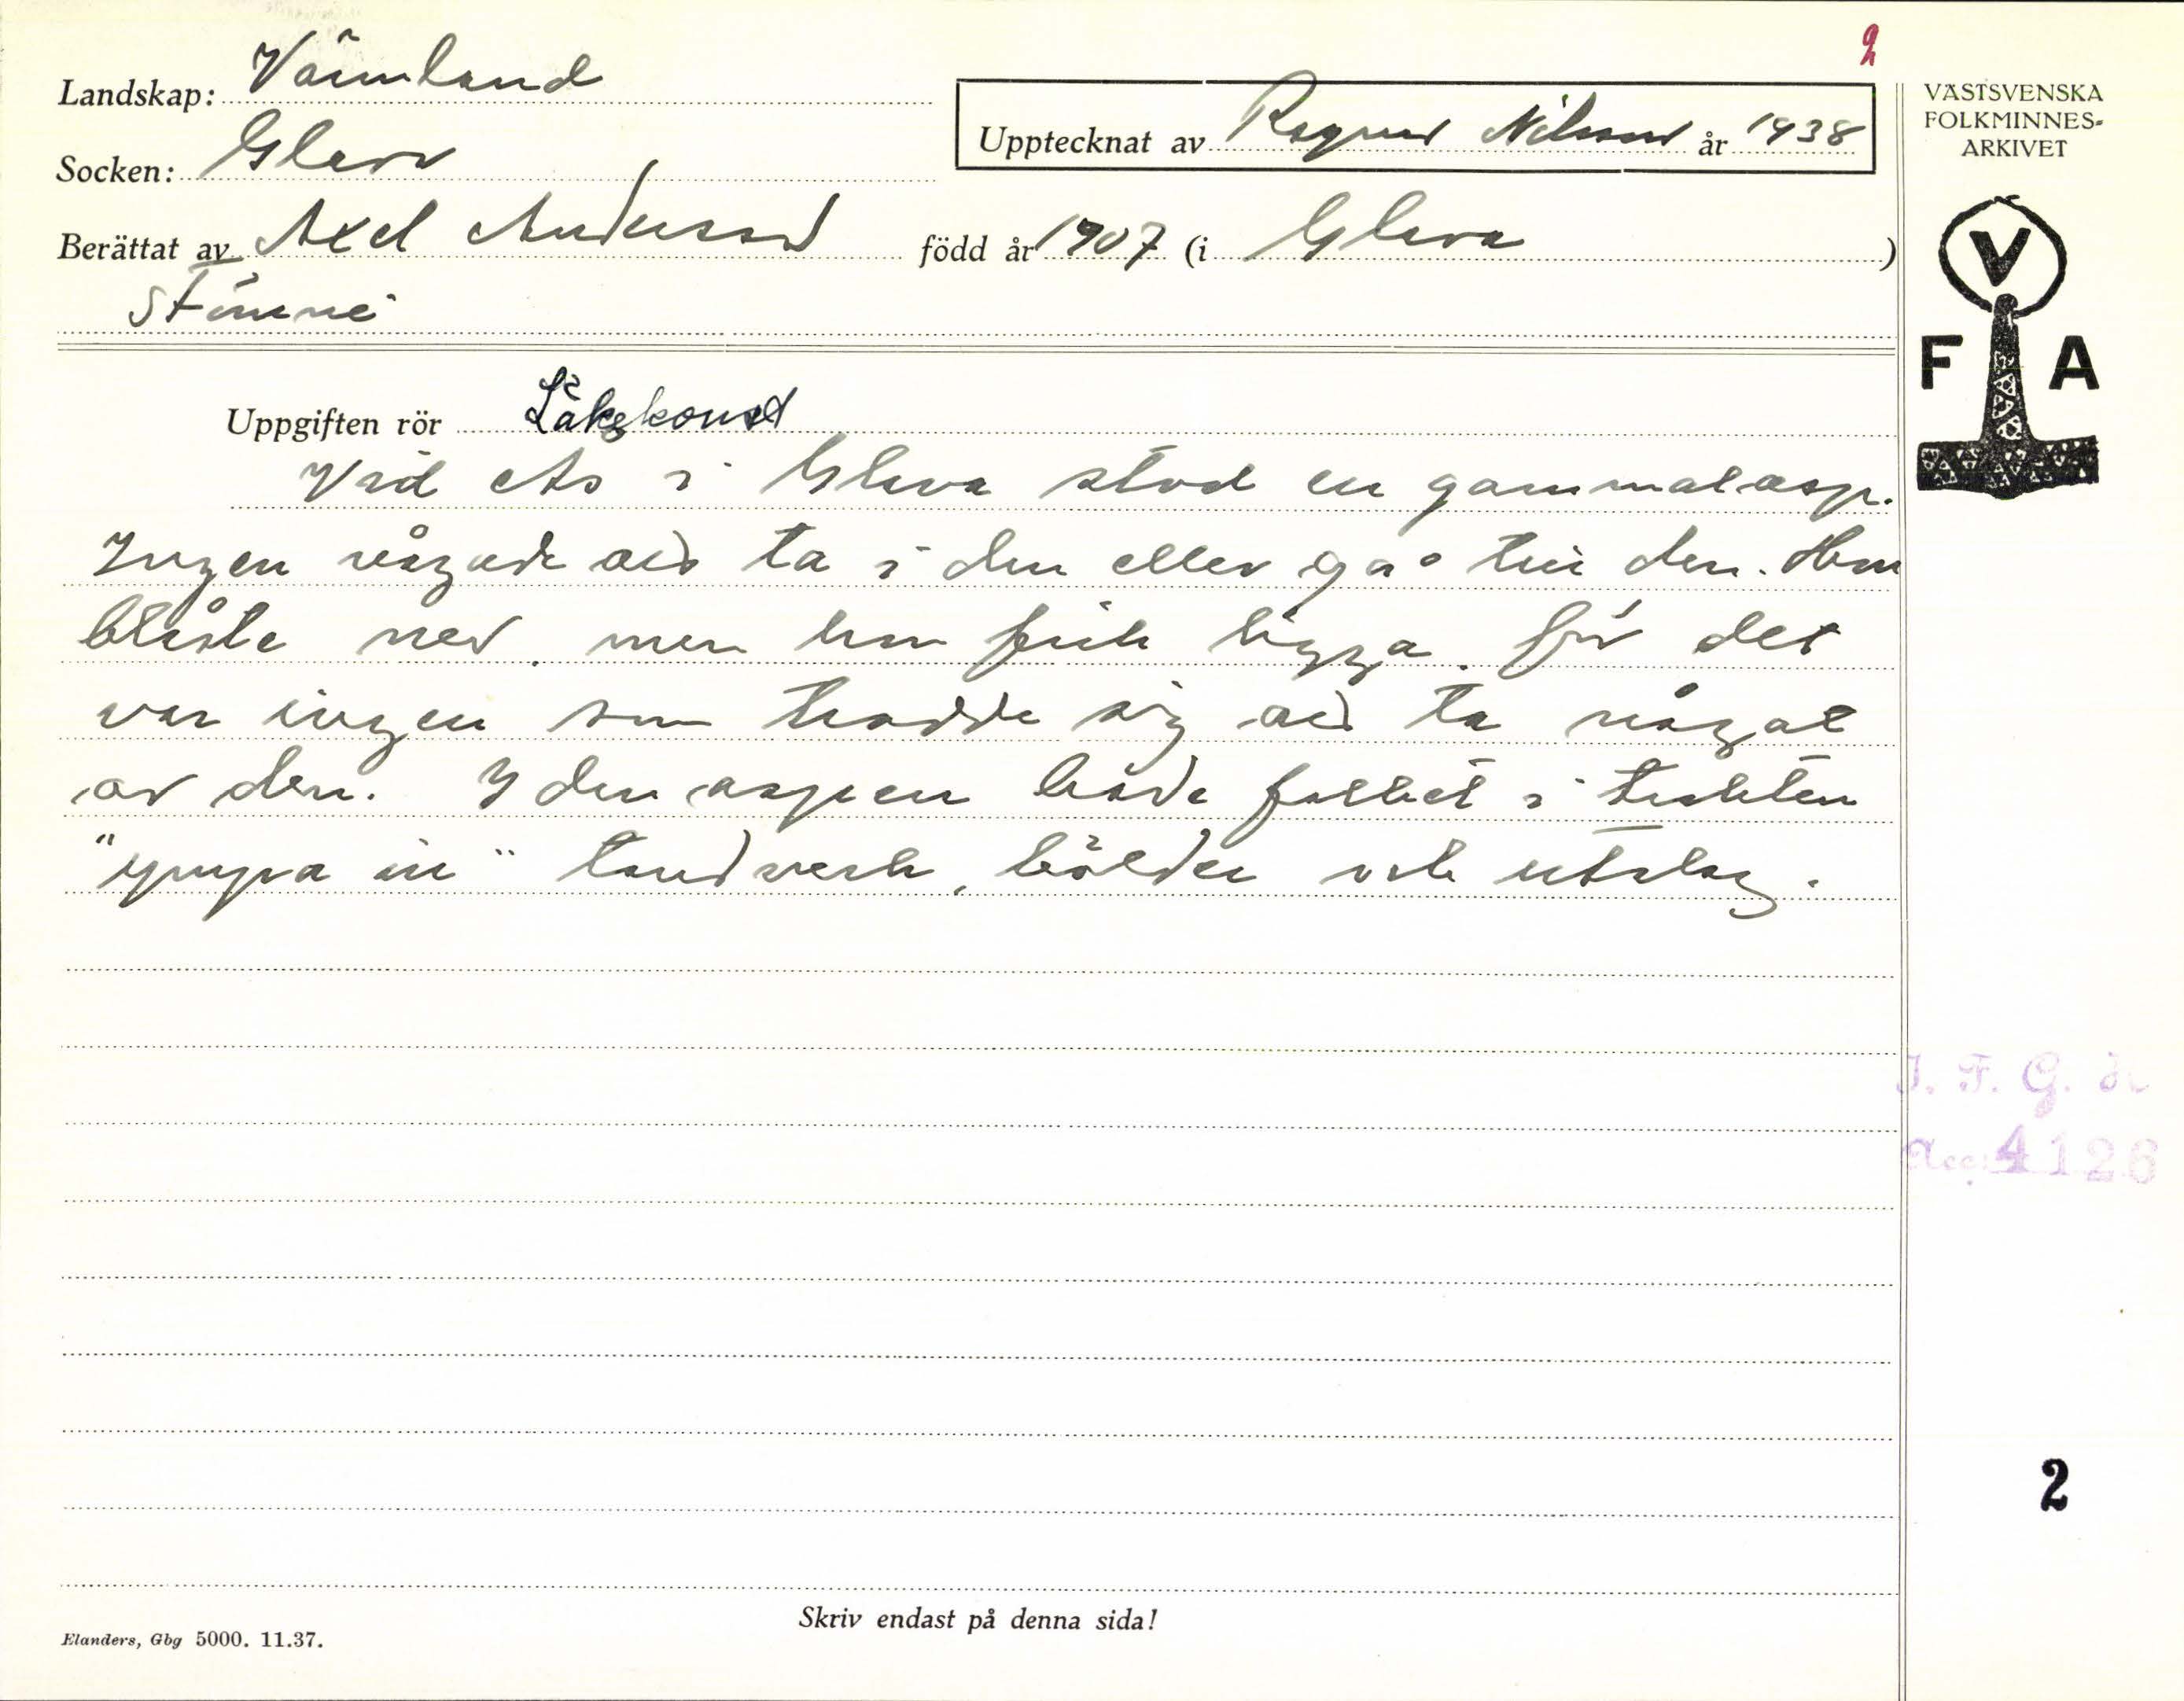 2
Landskap: Värmland
Socken: Glava
Upptecknat av Ragnar Nilsson år 1938
Berättat av Axel Andersson född år 1907 (i Glava)
Stömne
VÄSTSVENSKA
FOLKMINNES-
ARKIVET
V
F A
Uppgiften rör Läkekonst
Vid Ås i Glava stod en gammal asp.
Ingen vågade att ta i den eller gå till den. Den
blåste ned, men den fick ligga, för det
var ingen som trodde sig att ta något
av den. I den aspen hade folket i trakten
"ympa in" tandverk, bölder och utslag.
I. F. G. H
Acc. 4126
2
Skriv endast på denna sida!
Elanders, Gbg 5000. 11.37.